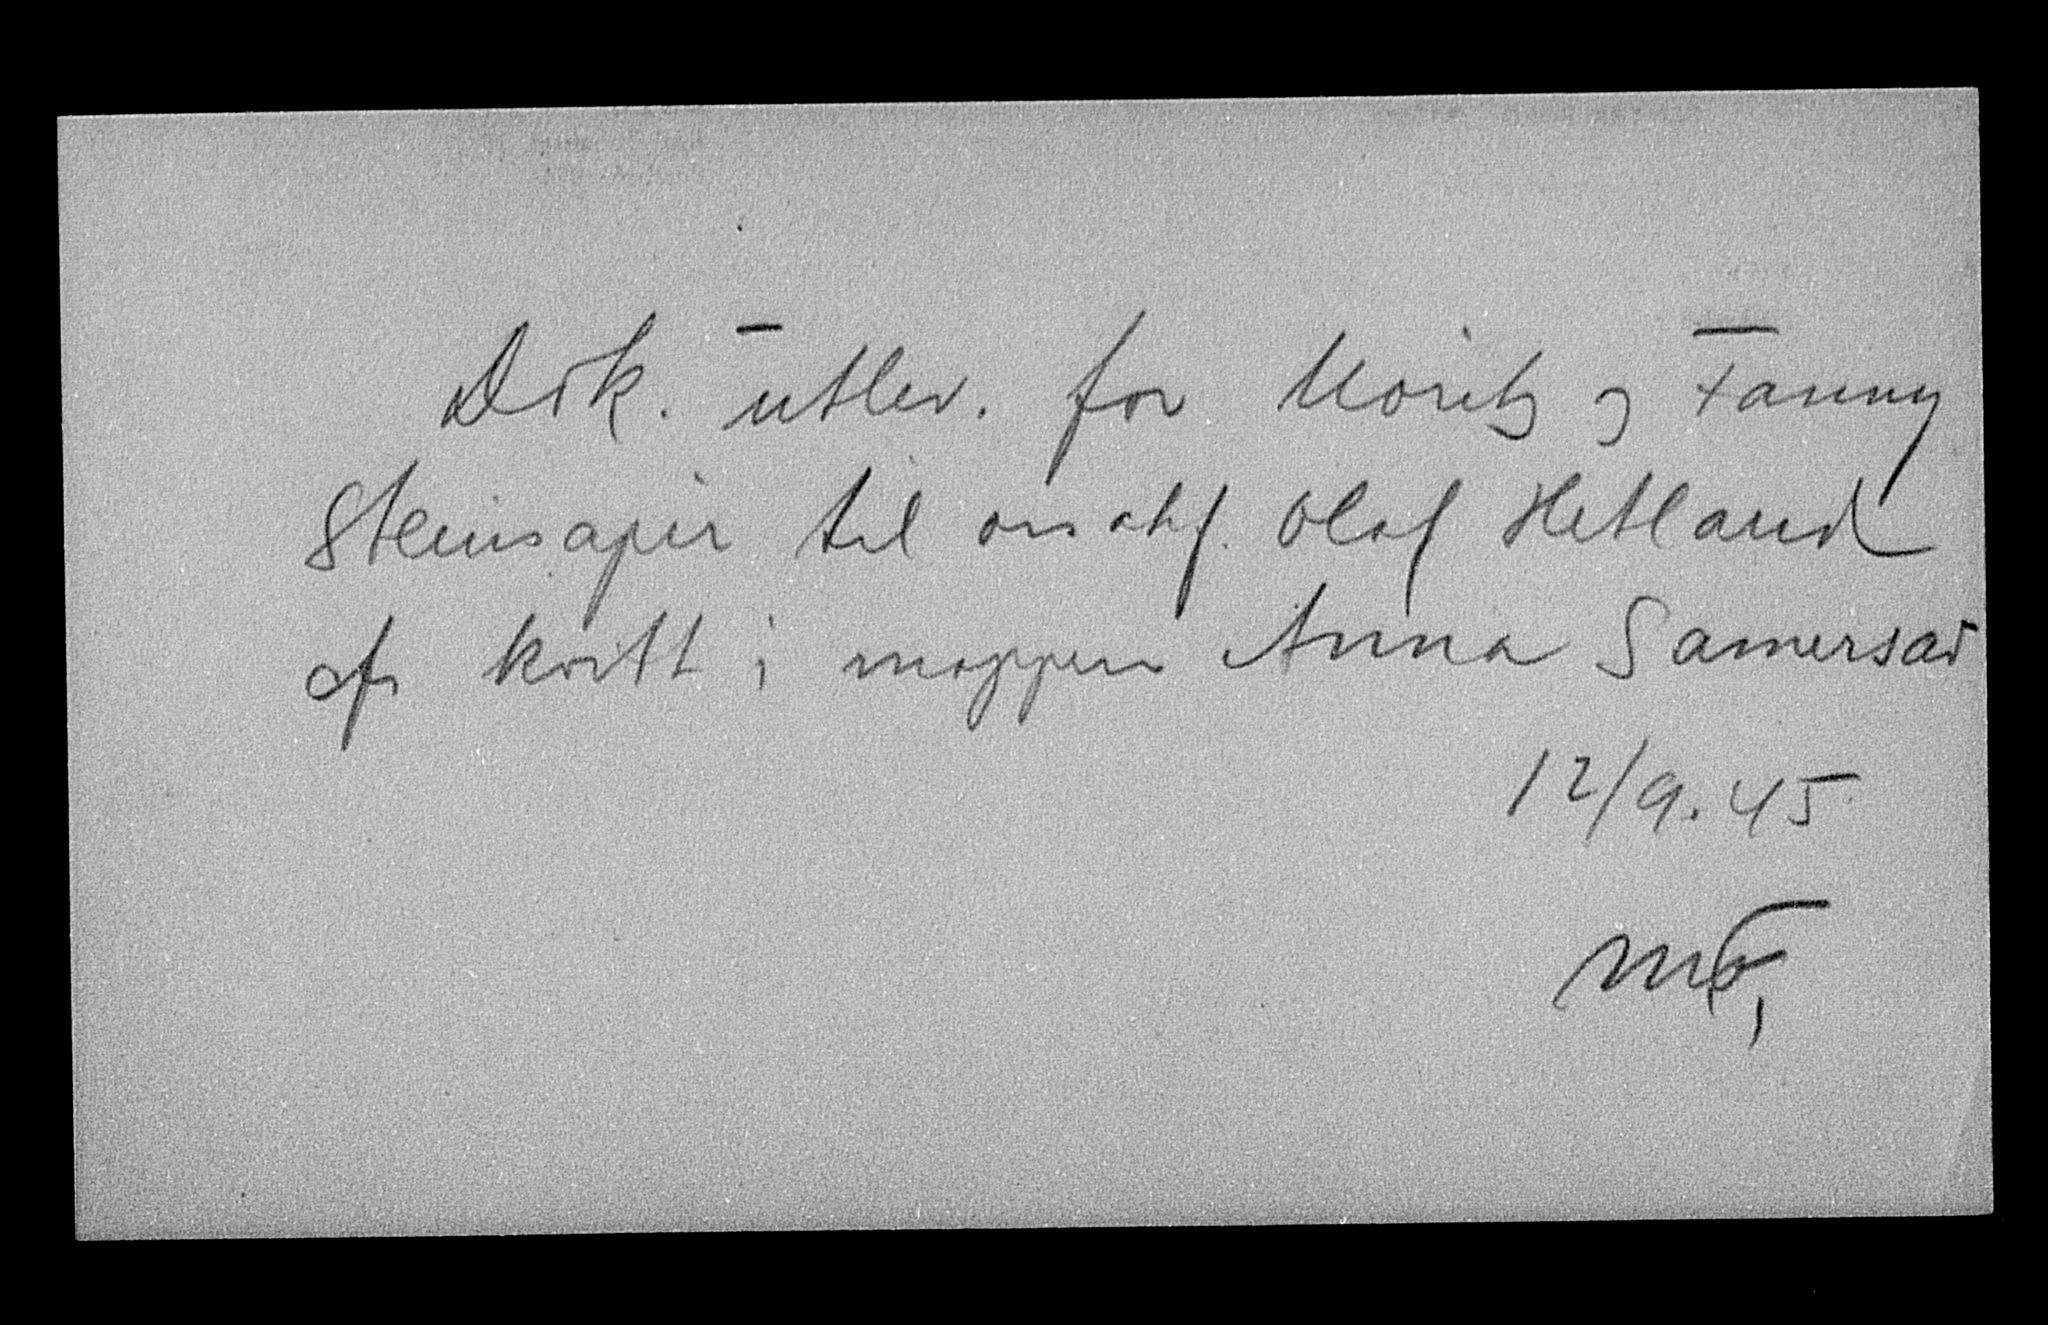 Dok. utlev. for Moritz og Fanny
Steinsapir til o.r.sakf. Olaf Hetland
cfr kvitt i mappen Anna Samersav
12/9.45